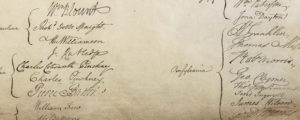 Wm Blount
Richd Dobbs Spaight
Hu Williamson
J. Rutledge
Charles Cotesworth Pinckney
Charles Pinckney
Pierce Butler
William Few
Jona: Dayton
B Franklin
Thomas Mi
Robt Morris
Pensylvania
Geo. Clymer
Jared Ingersoll
James Wilson